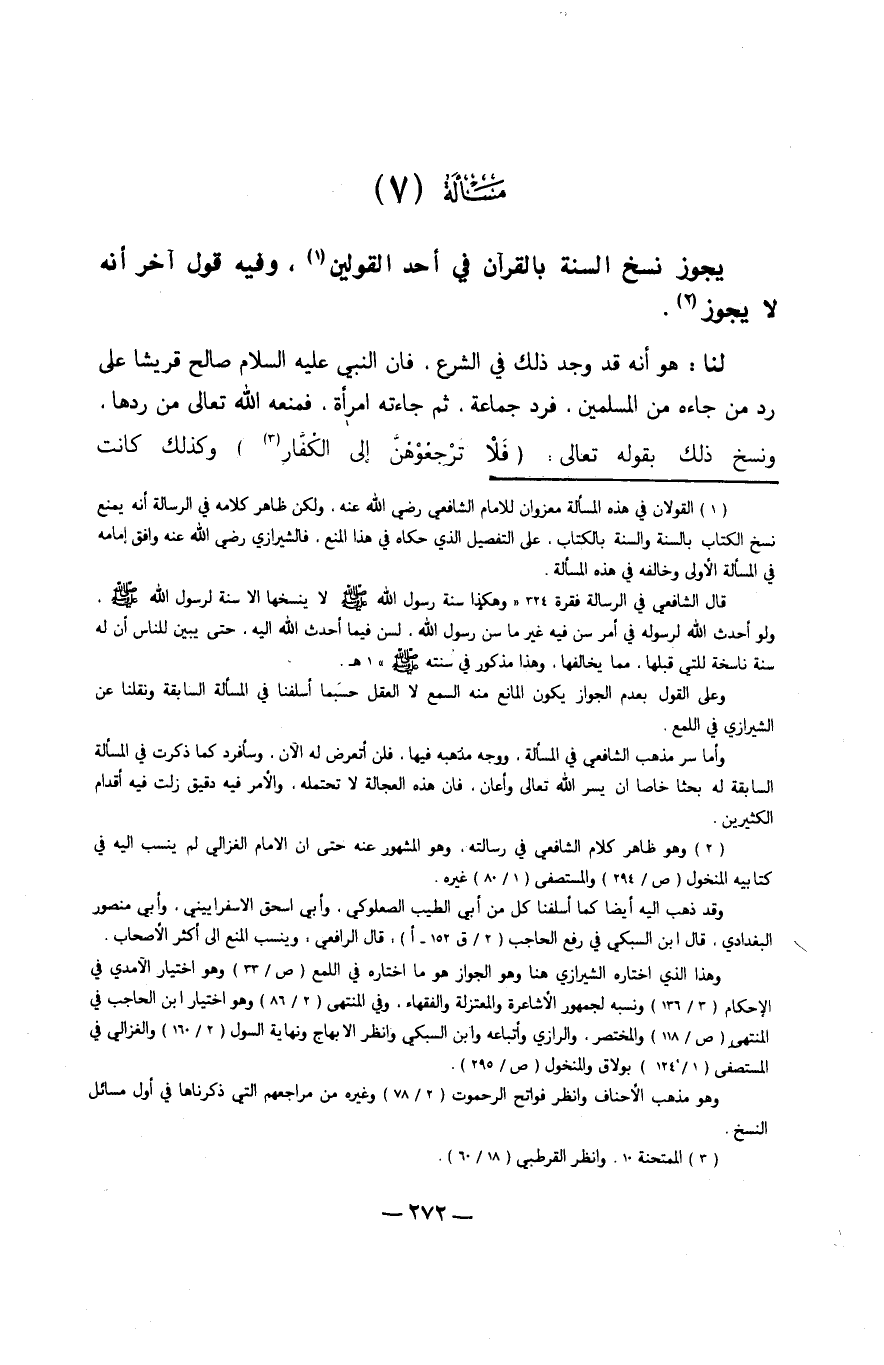 مسألة (٧)
يجوز نسخ السنة بالقرآن في أحد القولين(١) ، وفيه قول آخر أنه
لا يجوز(٢) .
لنا : هو أنه قد وجد ذلك في الشرع . فان النبي عليه السلام صالح قريشا على
رد من جاءه من المسلمين . فرد جماعة . ثم جاءته امرأة . فمنعه الله تعالى من ردها .
ونسخ ذلك بقوله تعالى : ( فَلَا تَرْجِعُوْهُنَّ إلى الكُفَّارِ(٣) ) وكذلك كانت
( ١ ) القولان في هذه المسألة معزوان للامام الشافعي رضي الله عنه . ولكن ظاهر كلامه في الرسالة أنه يمنع
نسخ الكتاب بالسنة والسنة بالكتاب . على التفصيل الذي حكاه في هذا المنع . فالشيرازي رضي الله عنه وافق إمامه
في المسألة الأولى وخالفه في هذه المسألة .
قال الشافعي في الرسالة فقرة ٣٢٤ « وهكذا سنة رسول الله ﷺ لا ينسخها الا سنة لرسول الله ﷺ .
ولو أحدث الله لرسوله في أمر سن فيه غير ما سن رسول الله . لسن فيما أحدث الله اليه . حتى يبين للناس أن له
سنة ناسخة للتي قبلها . مما يخالفها . وهذا مذكور في سنته ﷺ » ١ هـ .
وعلى القول بعدم الجواز يكون المانع منه السمع لا العقل حسبما أسلفنا في المسألة السابقة ونقلنا عن
الشيرازي في اللمع .
وأما سر مذهب الشافعي في المسألة . ووجه مذهبه فيها . فلن أتعرض له الآن . وسأفرد كما ذكرت في المسألة
السابقة له بحثا خاصا ان يسر الله تعالى وأعان . فان هذه العجالة لا تحتمله . والأمر فيه دقيق زلت فيه أقدام
الكثيرين .
( ٢ ) وهو ظاهر كلام الشافعي في رسالته . وهو المشهور عنه حتى ان الامام الغزالي لم ينسب اليه في
كتابيه المنخول ( ص / ٢٩٤ ) والمستصفى ( ١ / ٨٠ ) غيره .
وقد ذهب اليه أيضا كما أسلفنا كل من أبي الطيب الصعلوكي . وأبي اسحق الاسفراييني . وأبي منصور
البغدادي . قال ابن السبكي في رفع الحاجب ( ٢ / ق ١٥٢ - أ ) . قال الرافعي : وينسب المنع الى أكثر الأصحاب .
وهذا الذي اختاره الشيرازي هنا وهو الجواز هو ما اختاره في اللمع ( ص / ٣٣ ) وهو اختيار الآمدي في
الإحكام ( ٣ / ١٣٦ ) ونسبه لجمهور الأشاعرة والمعتزلة والفقهاء . وفي المنتهى ( ٢ / ٨٦ ) وهو اختيار ابن الحاجب في
المنتهى ( ص / ١١٨ ) والمختصر . والرازي وأتباعه وابن السبكي وانظر الابهاج ونهاية السول ( ٢ / ١٦٠ ) والغزالي في
المستصفى ( ١ / ١٢٤ ) بولاق والمنخول ( ص / ٢٩٥ ) .
وهو مذهب الأحناف وانظر فواتح الرحموت ( ٢ / ٧٨ ) وغيره من مراجعهم التي ذكرناها في أول مسائل
النسخ .
( ٣ ) الممتحنة ١٠ . وانظر القرطبي ( ١٨ / ٦٠ ) .
— ٢٧٢ —